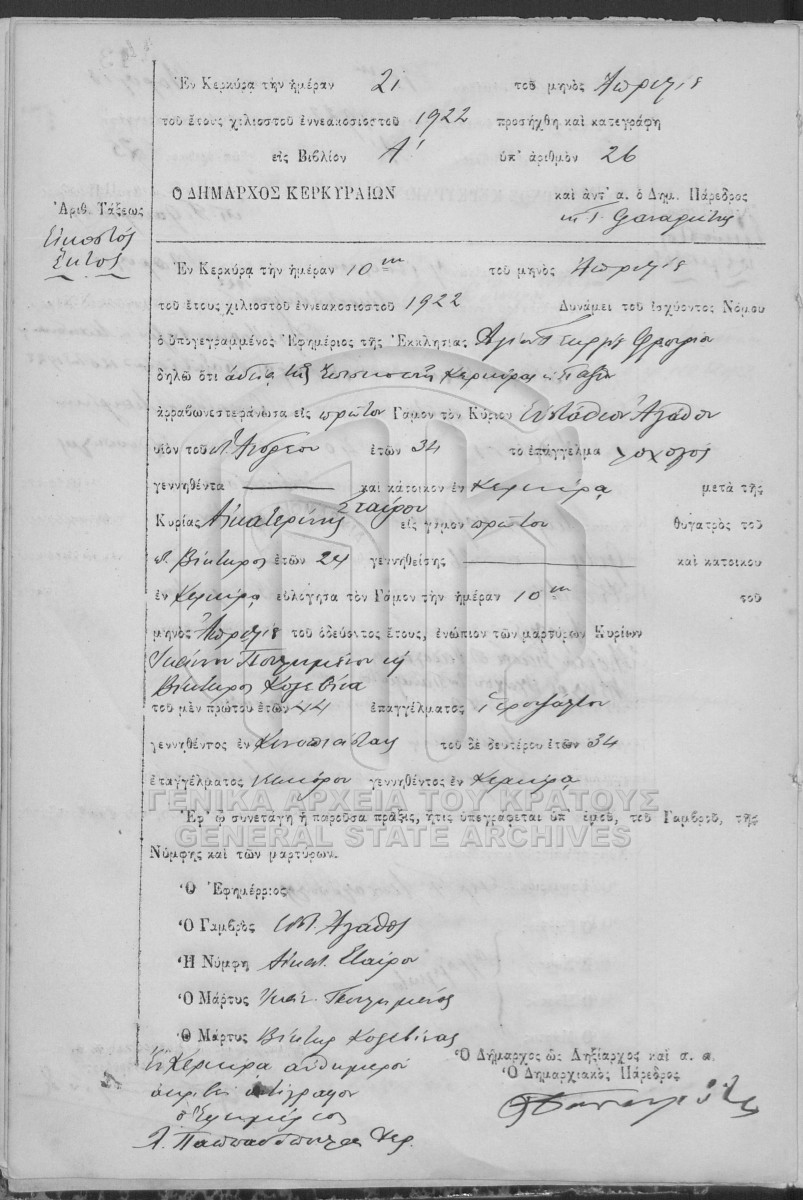 Ἐν Κερκύρᾳ τὴν ἡμέραν 21 τοῦ μηνὸς Ἀπριλίου
τοῦ ἔτους χιλιοστοῦ ἐννεακοσιοστοῦ 1922 προσήχθη καὶ κατεγράφη
εἰς Βιβλίον Α' ὑπ' ἀριθμὸν 26
Ο ΔΗΜΑΡΧΟΣ ΚΕΡΚΥΡΑΙΩΝ καὶ ἀντ' α. ὁ Δημ. Πάρεδρος
Ἀριθ. Τάξεως
Εἰκοστός
Ἕκτος
Ἐν Κερκύρᾳ τὴν ἡμέραν 10ην τοῦ μηνὸς Ἀπριλίου
τοῦ ἔτους χιλιοστοῦ ἐννεακοσιοστοῦ 1922 Δυνάμει τοῦ ἰσχύοντος Νόμου
ὁ ὑπογεγραμμένος Ἐφημέριος τῆς Ἐκκλησίας Ἁγίου Γεωργίου Φρουρίου
δηλῶ ὅτι ἀδείᾳ τῆς Ἐπισκοπῆς Κερκύρας κ Παξῶν
ἀρραβωνεστεράνωσα εἰς πρῶτον Γάμον τὸν Κύριον Εὐστάθιον Ἀγάθον
υἱὸν τοῦ Ἀνδρέου ἐτῶν 34 τὸ ἐπάγγελμα
γεννηθέντα καὶ κάτοικον ἐν Κερκύρᾳ μετὰ τῆς
Κυρίας Αἰκατερίνης Σταΐρου εἰς γάμον πρῶτον θυγατρὸς τοῦ
Βίκτωρος ἐτῶν 24 γεννηθείσης καὶ κατοίκου
ἐν Κερκύρᾳ εὐλόγησα τὸν Γάμον τὴν ἡμέραν 10ην τοῦ
μηνὸς Ἀπριλίου τοῦ ὁδεύοντος ἔτους, ἐνώπιον τῶν μαρτύρων Κυρίων
Ἰωάννου Πουλημένου κ
Βίκτωρος Κολεβίνα
τοῦ μὲν πρώτου ἐτῶν 44 ἐπαγγέλματος Ἱεροψάλτου
γεννηθέντος ἐν Κυνοπιάστας τοῦ δὲ δευτέρου ἐτῶν 34
ἐπαγγέλματος γεννηθέντος ἐν Κερκύρᾳ
ΓΕΝΙΚΑ ΑΡΧΕΙΑ ΤΟΥ ΚΡΑΤΟΥΣ
Ἐφ' ᾧ συνετάγη ἡ παροῦσα πρᾶξις, ἥτις ὑπεγράφεται ὑπ' ἐμοῦ, τοῦ Γαμβροῦ, τῆς
GENERAL STATE ARCHIVES
Νύμφης καὶ τῶν μαρτύρων.
Ὁ Ἐφημέρριος
Ὁ Γαμβρὸς Εὐστ. Ἀγάθος
Ἡ Νύμφη Αἰκατ. Σταΐρου
Ὁ Μάρτυς Ἰωάν. Πουλημένος
Ὁ Μάρτυς Βίκτωρ Κολεβίνας
Ἐν Κερκύρᾳ αὐθημερόν
Ὁ Δήμαρχος ὡς Ληξίαρχος καὶ α. α.
Ὁ Δημαρχιακὸς Πάρεδρος
ἀκριβὲς ἀντίγραφον
ὁ Ἐφημέριος